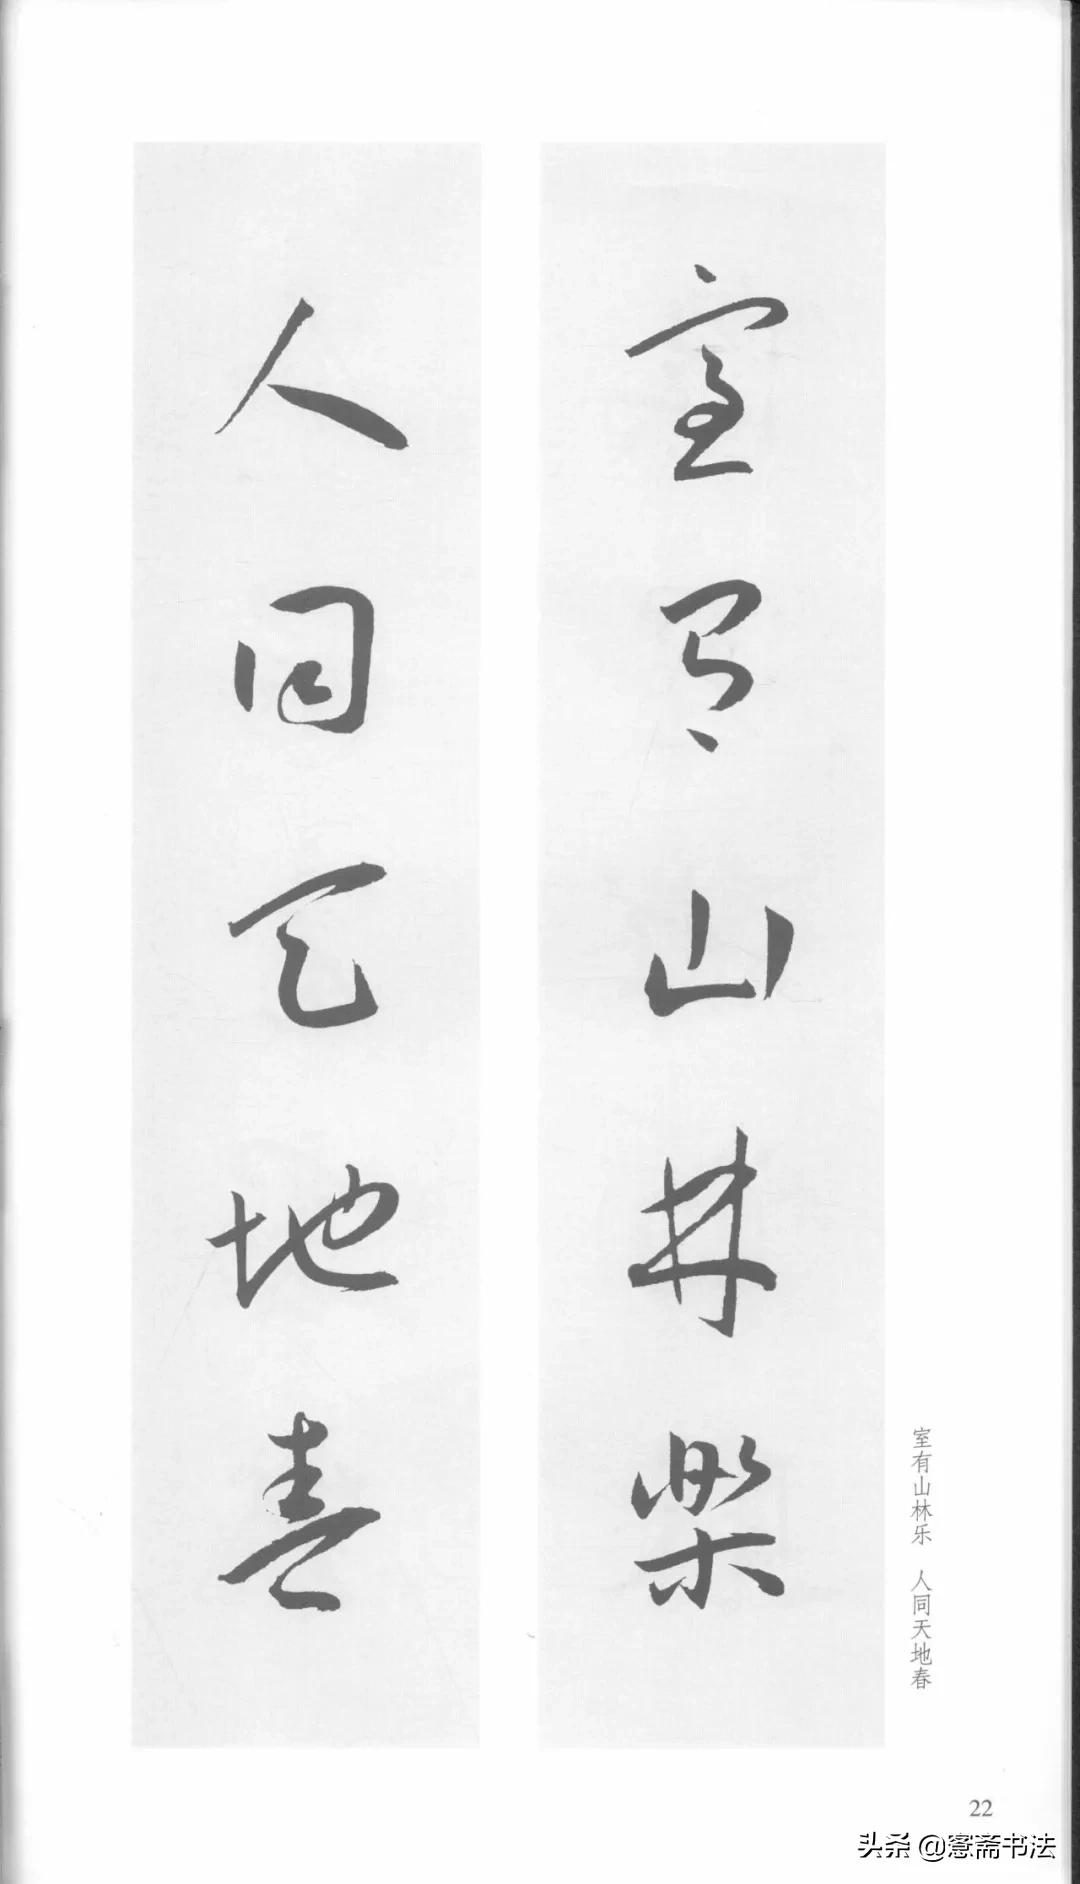 室有山林樂
人同天地春
室有山林乐 人同天地春
22
头条 @窓斋书法